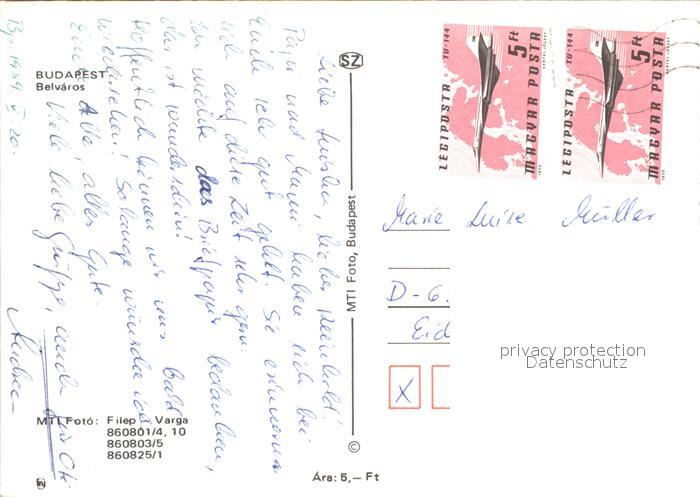 BUDAPEST
Belváros
Bp. 1989 V. 20.
Liebe Luislu, lieber Reinhold!
Papa und Mami haben sich bei
Euch sehr gut gefühlt. Sie erinnern
sich auf diese Zeit sehr gern.
Ich möchte das Briefpapier bedanken,
das ist wunderschön!
Hoffentlich können wir uns bald
wiedersehen! Solange wünsche ich
Euch Alle, alles Gute.
Viele liebe Grüsse, auch für Oti
Andrea
MTI Fotó: Filep - Varga
860801/4, 10
860803/5
860825/1
Ára: 5,— Ft
SZ
MTI Foto, Budapest
©
LÉGIPOSTA TU-144
5 Ft
MAGYAR POSTA
1976
LÉGIPOSTA TU-144
5 Ft
MAGYAR POSTA
1976
Marie Luise Müller
D-6.
Eid
X
privacy protection
Datenschutz